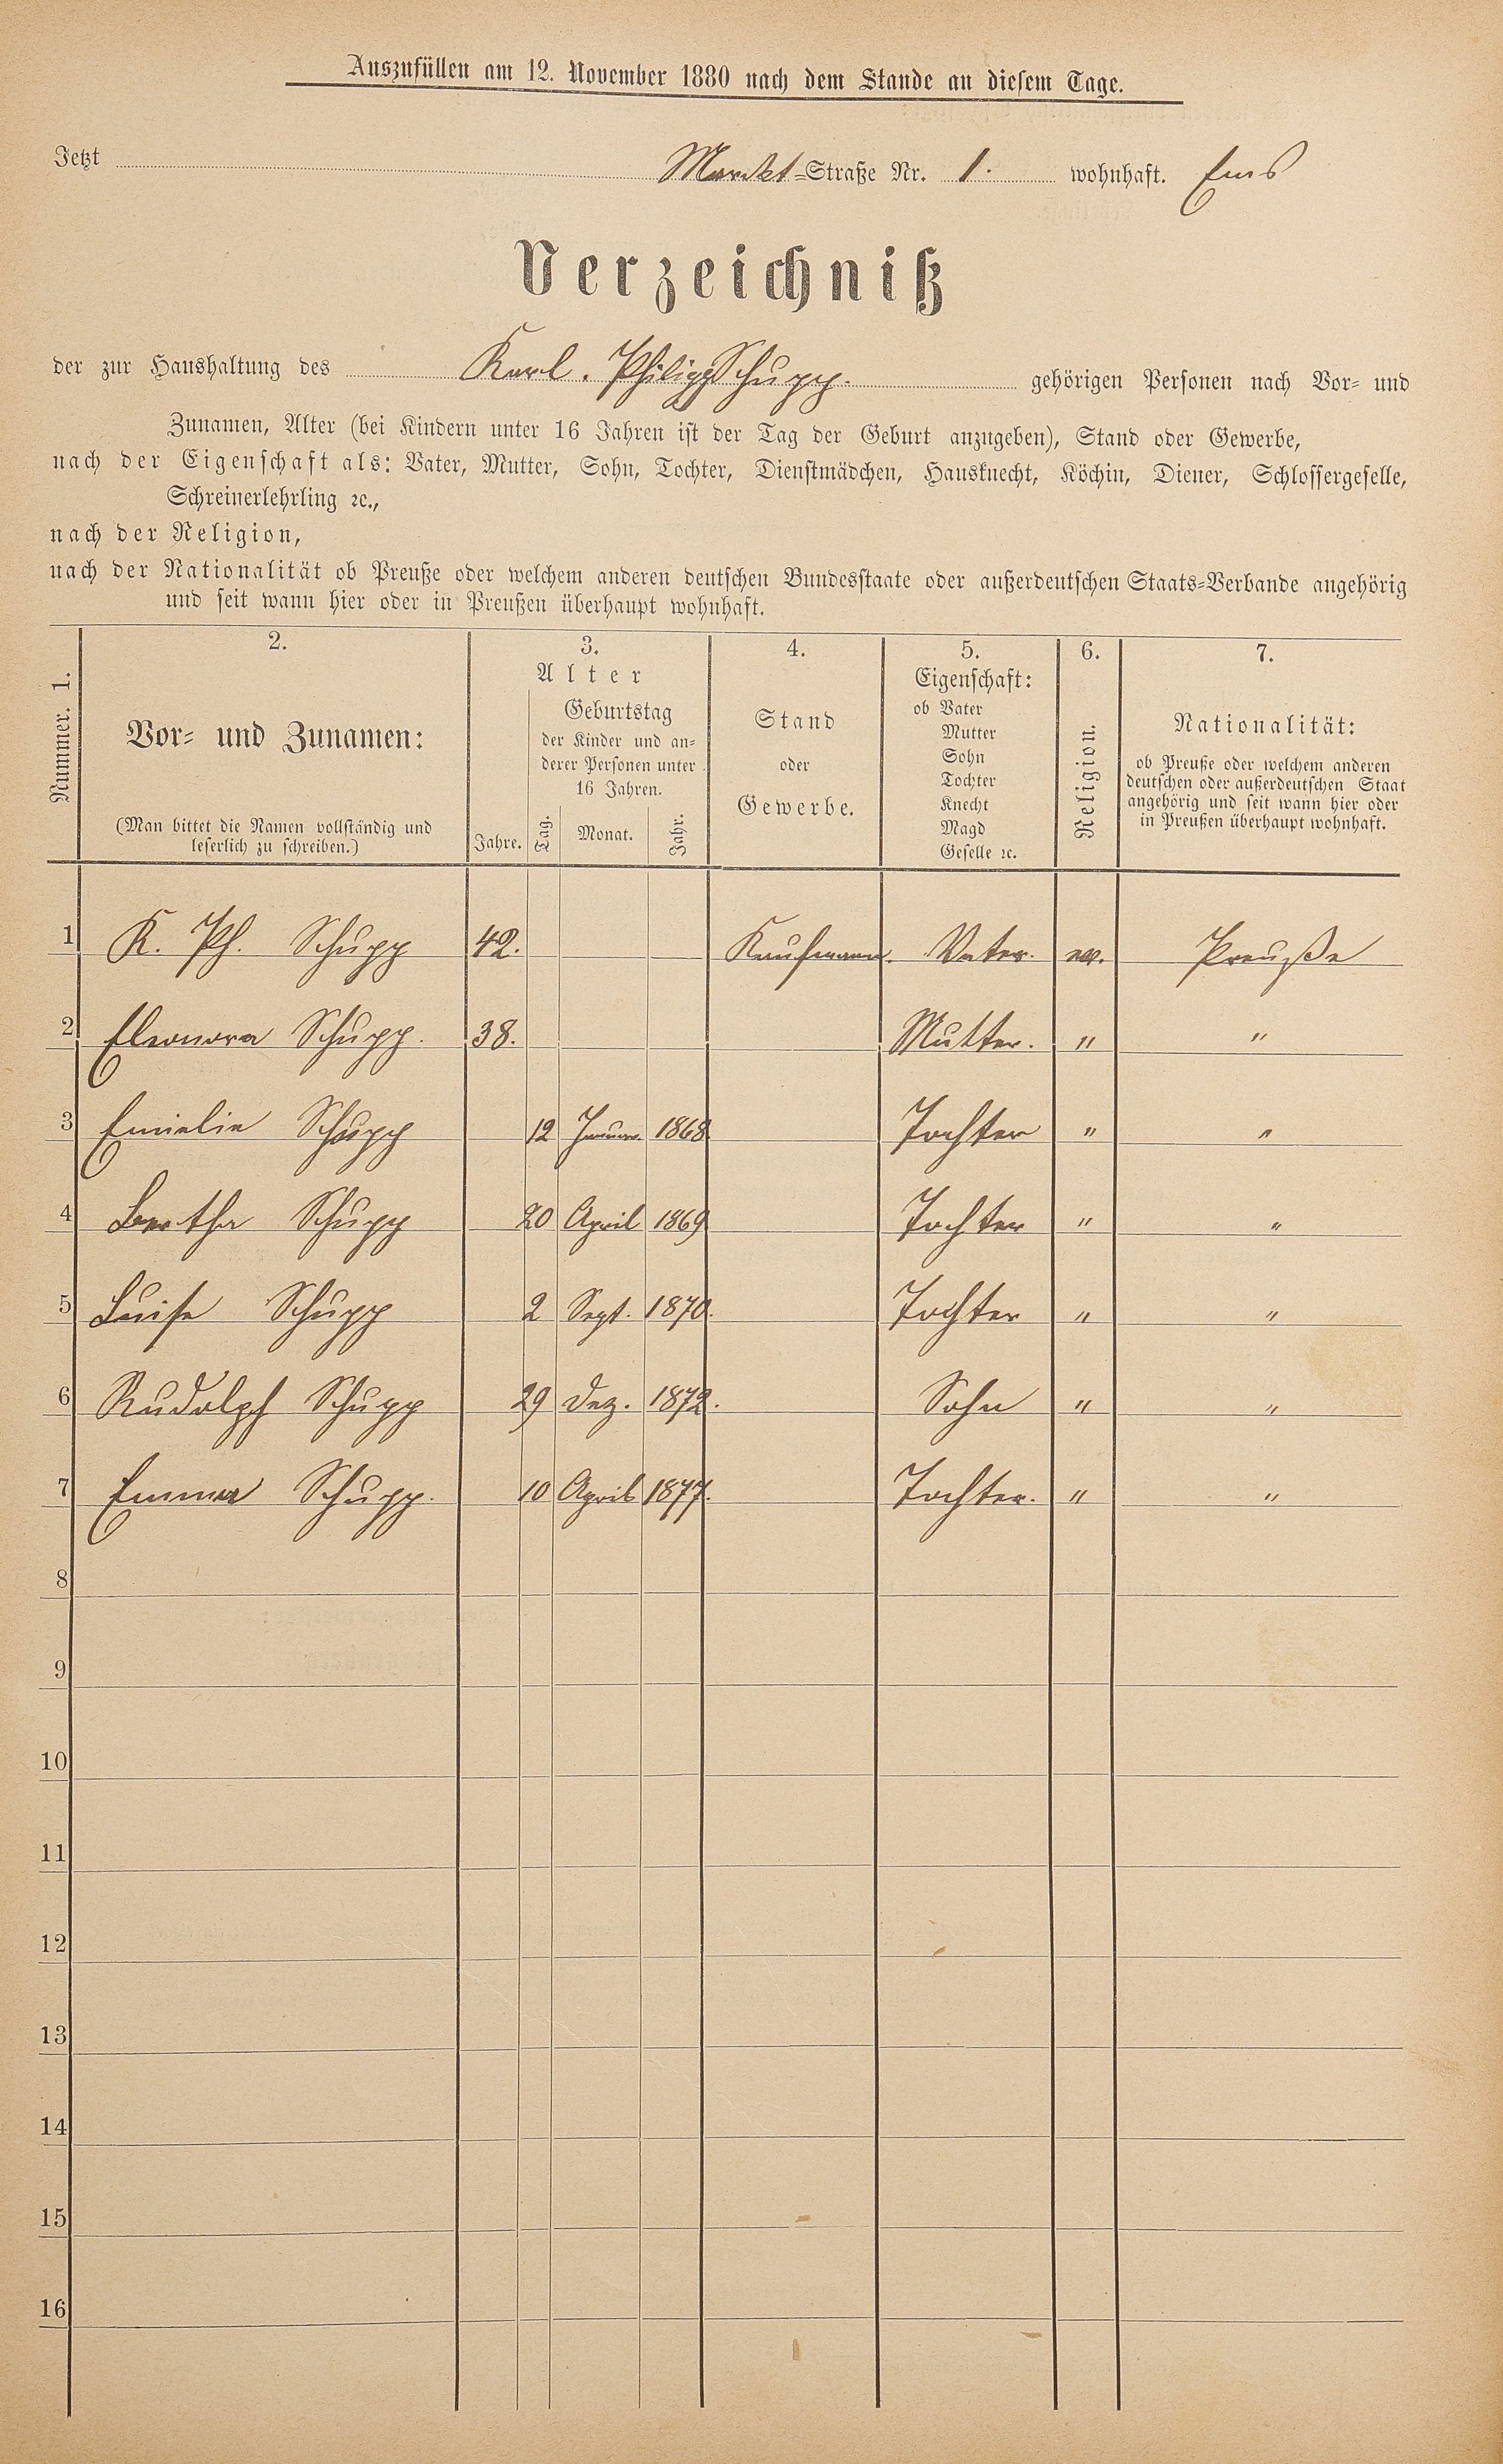 Auszufüllen am 12. November 1880 nach dem Stande an diesem Tage.
Jetzt Markt-Straße Nr. 1. wohnhaft. Ems
Verzeichniß
der zur Haushaltung des Karl. Philipp Schupp. gehörigen Personen nach Vor- und
Zunamen, Alter (bei Kindern unter 16 Jahren ist der Tag der Geburt anzugeben), Stand oder Gewerbe,
nach der Eigenschaft als: Vater, Mutter, Sohn, Tochter, Dienstmädchen, Hausknecht, Köchin, Diener, Schlossergeselle,
Schreinerlehrling ꝛc.,
nach der Religion,
nach der Nationalität ob Preuße oder welchem anderen deutschen Bundesstaate oder außerdeutschen Staats-Verbande angehörig
und seit wann hier oder in Preußen überhaupt wohnhaft.
Nummer. 1.
2.
Vor- und Zunamen:
(Man bittet die Namen vollständig und
leserlich zu schreiben.)
3.
Alter
Jahre.
Geburtstag
der Kinder und an-
derer Personen unter
16 Jahren.
Tag. Monat. Jahr.
4.
Stand
oder
Gewerbe.
5.
Eigenschaft:
ob Vater
Mutter
Sohn
Tochter
Knecht
Magd
Geselle ꝛc.
6.
Religion.
7.
Nationalität:
ob Preuße oder welchem anderen
deutschen oder außerdeutschen Staat
angehörig und seit wann hier oder
in Preußen überhaupt wohnhaft.
1 K. Ph. Schupp 42. Kaufmann. Vater. ev. Preuße
2 Eleonora Schupp. 38. Mutter. " "
3 Emielie Schupp 12 Januar. 1868 Tochter " "
4 Bertha Schupp 20 April 1869 Tochter " "
5 Luise Schupp 2 Sept. 1870. Tochter " "
6 Rudolph Schupp 29 Dez. 1872. Sohn " "
7 Emma Schupp. 10 April 1877. Tochter. " "
8
9
10
11
12
13
14
15
16